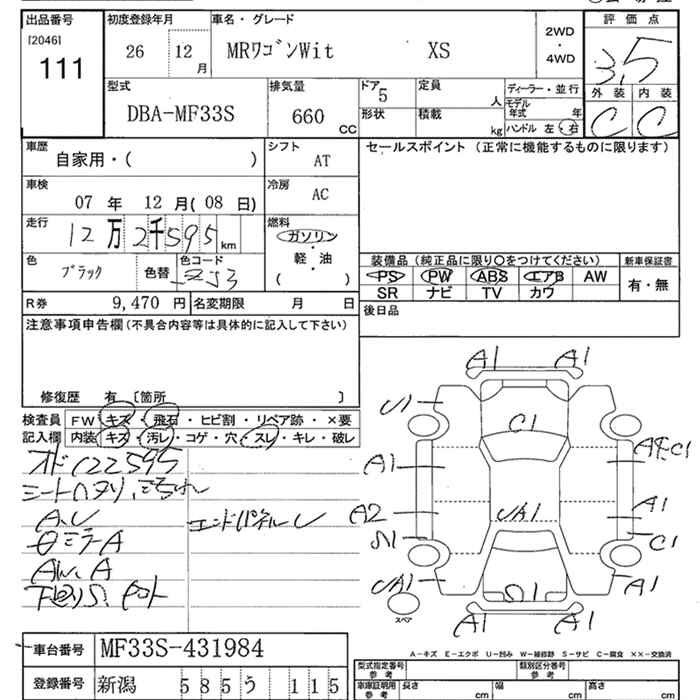 出品番号 初度登録年月 車名・グレード 評価点
[2046] 111 26 12月 MRワゴンWit XS 2WD・4WD 3.5
型式 排気量 ドア 5 定員 人 ディーラー・並行 外装 内装
DBA-MF33S 660 CC 形状 積載 kg モデル年式 年 C C
ハンドル 左・右
車歴 シフト セールスポイント (正常に機能するものに限ります)
自家用・( ) AT
車検 冷房
07年 12月(08日) AC
走行 燃料
12万2千595km ガソリン・軽・油
( )
色 色コード 装備品(純正品に限り○をつけてください) 新車保証書
ブラック 色替 ZJ3 PS PW ABS エアB AW 有・無
SR ナビ TV カワ
R券 9,470円 名変期限 月 日 後日品
注意事項申告欄(不具合内容等は具体的に記入して下さい)
修復歴 有 [箇所 ]
検査員 FW キズ・飛石・ヒビ割・リペア跡・×要
記入欄 内装 キズ・汚レ・コゲ・穴・スレ・キレ・破レ
オド122595
A.U エンドパネルU
ミラーA
AW.A
A1 A1
U1 C1
A1 A1
A2 UA1 A1
S1 C1
UA1 S1 A1
スペア A1 A1
A-キズ E-エクボ U-凹み W-補修跡 S-サビ C-腐食 ××-交換済
車台番号 MF33S-431984 型式指定番号 参考 類別区分番号 参考
登録番号 新潟 585 う 115 車庫証明用 参考 長さ cm 幅 cm 高さ cm